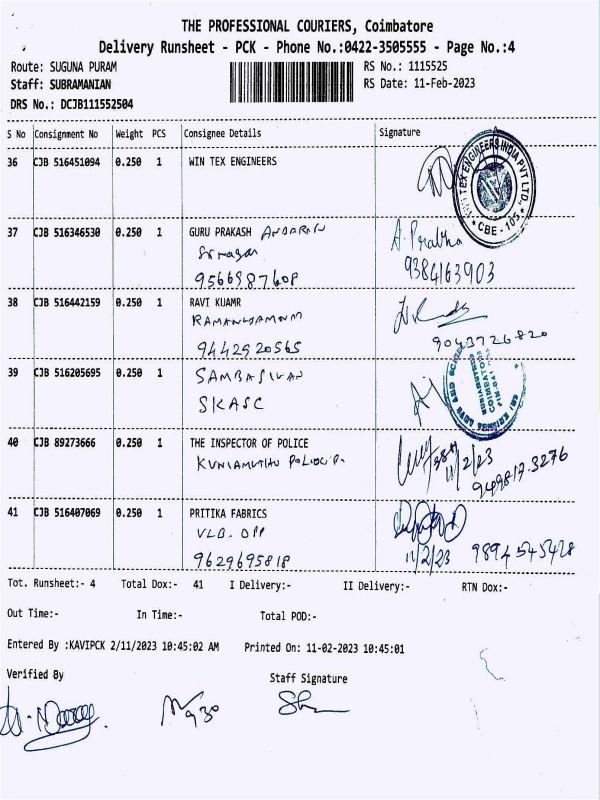 THE PROFESSIONAL COURIERS, Coimbatore
Delivery Runsheet - PCK - Phone No.:0422-3505555 - Page No.:4
Route: SUGUNA PURAM RS No.: 1115525
Staff: SUBRAMANIAN RS Date: 11-Feb-2023
DRS No.: DCJB111552504
S No Consignment No Weight PCS Consignee Details Signature
36 CJB 516451094 0.250 1 WIN TEX ENGINEERS
TEX ENGINEERS INDIA PVT LTD.,
* CBE - 105 *
37 CJB 516346530 0.250 1 GURU PRAKASH A. Prabha
9566987608 9384163903
38 CJB 516442159 0.250 1 RAVI KUAMR
9442920565 9043726820
39 CJB 516205695 0.250 1 SAMBASIVAN
SKASC
40 CJB 89273666 0.250 1 THE INSPECTOR OF POLICE
11/2/23
949817.3276
41 CJB 516407069 0.250 1 PRITIKA FABRICS
VLB. OPP
9629695818 11/2/23 9894545428
Tot. Runsheet:- 4 Total Dox:- 41 I Delivery:- II Delivery:- RTN Dox:-
Out Time:- In Time:- Total POD:-
Entered By :KAVIPCK 2/11/2023 10:45:02 AM Printed On: 11-02-2023 10:45:01
Verified By Staff Signature